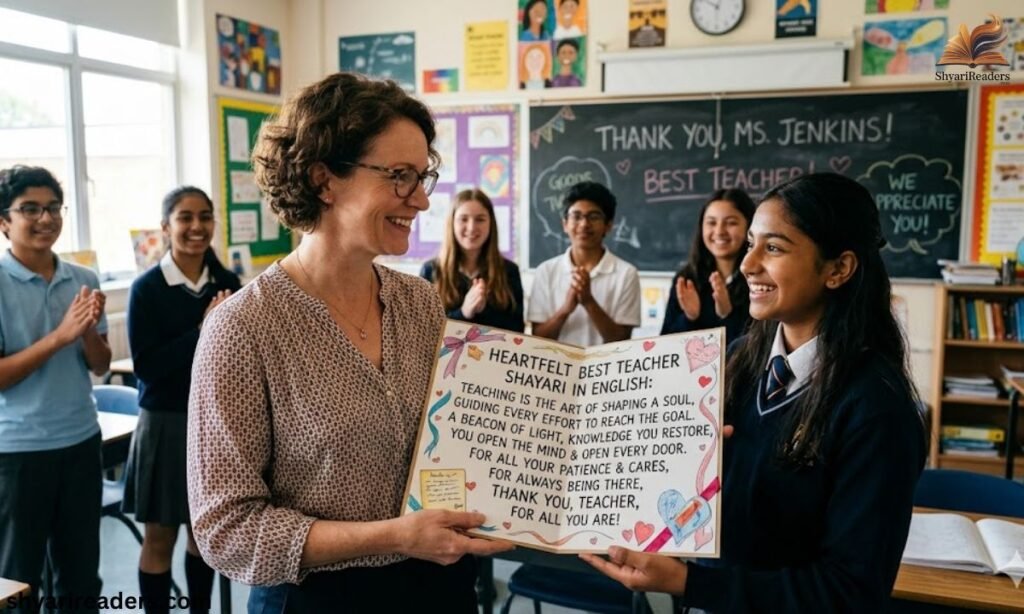 ShyariReaders
THANK YOU, MS. JENKINS!
BEST TEACHER!
WE
APPRECIATE
YOU!
HEARTFELT BEST TEACHER
SHAYARI IN ENGLISH:
TEACHING IS THE ART OF SHAPING A SOUL,
GUIDING EVERY EFFORT TO REACH THE GOAL.
A BEACON OF LIGHT, KNOWLEDGE YOU RESTORE,
YOU OPEN THE MIND & OPEN EVERY DOOR.
FOR ALL YOUR PATIENCE & CARES,
FOR ALWAYS BEING THERE,
THANK YOU, TEACHER,
FOR ALL YOU ARE!
shyarireaders.com